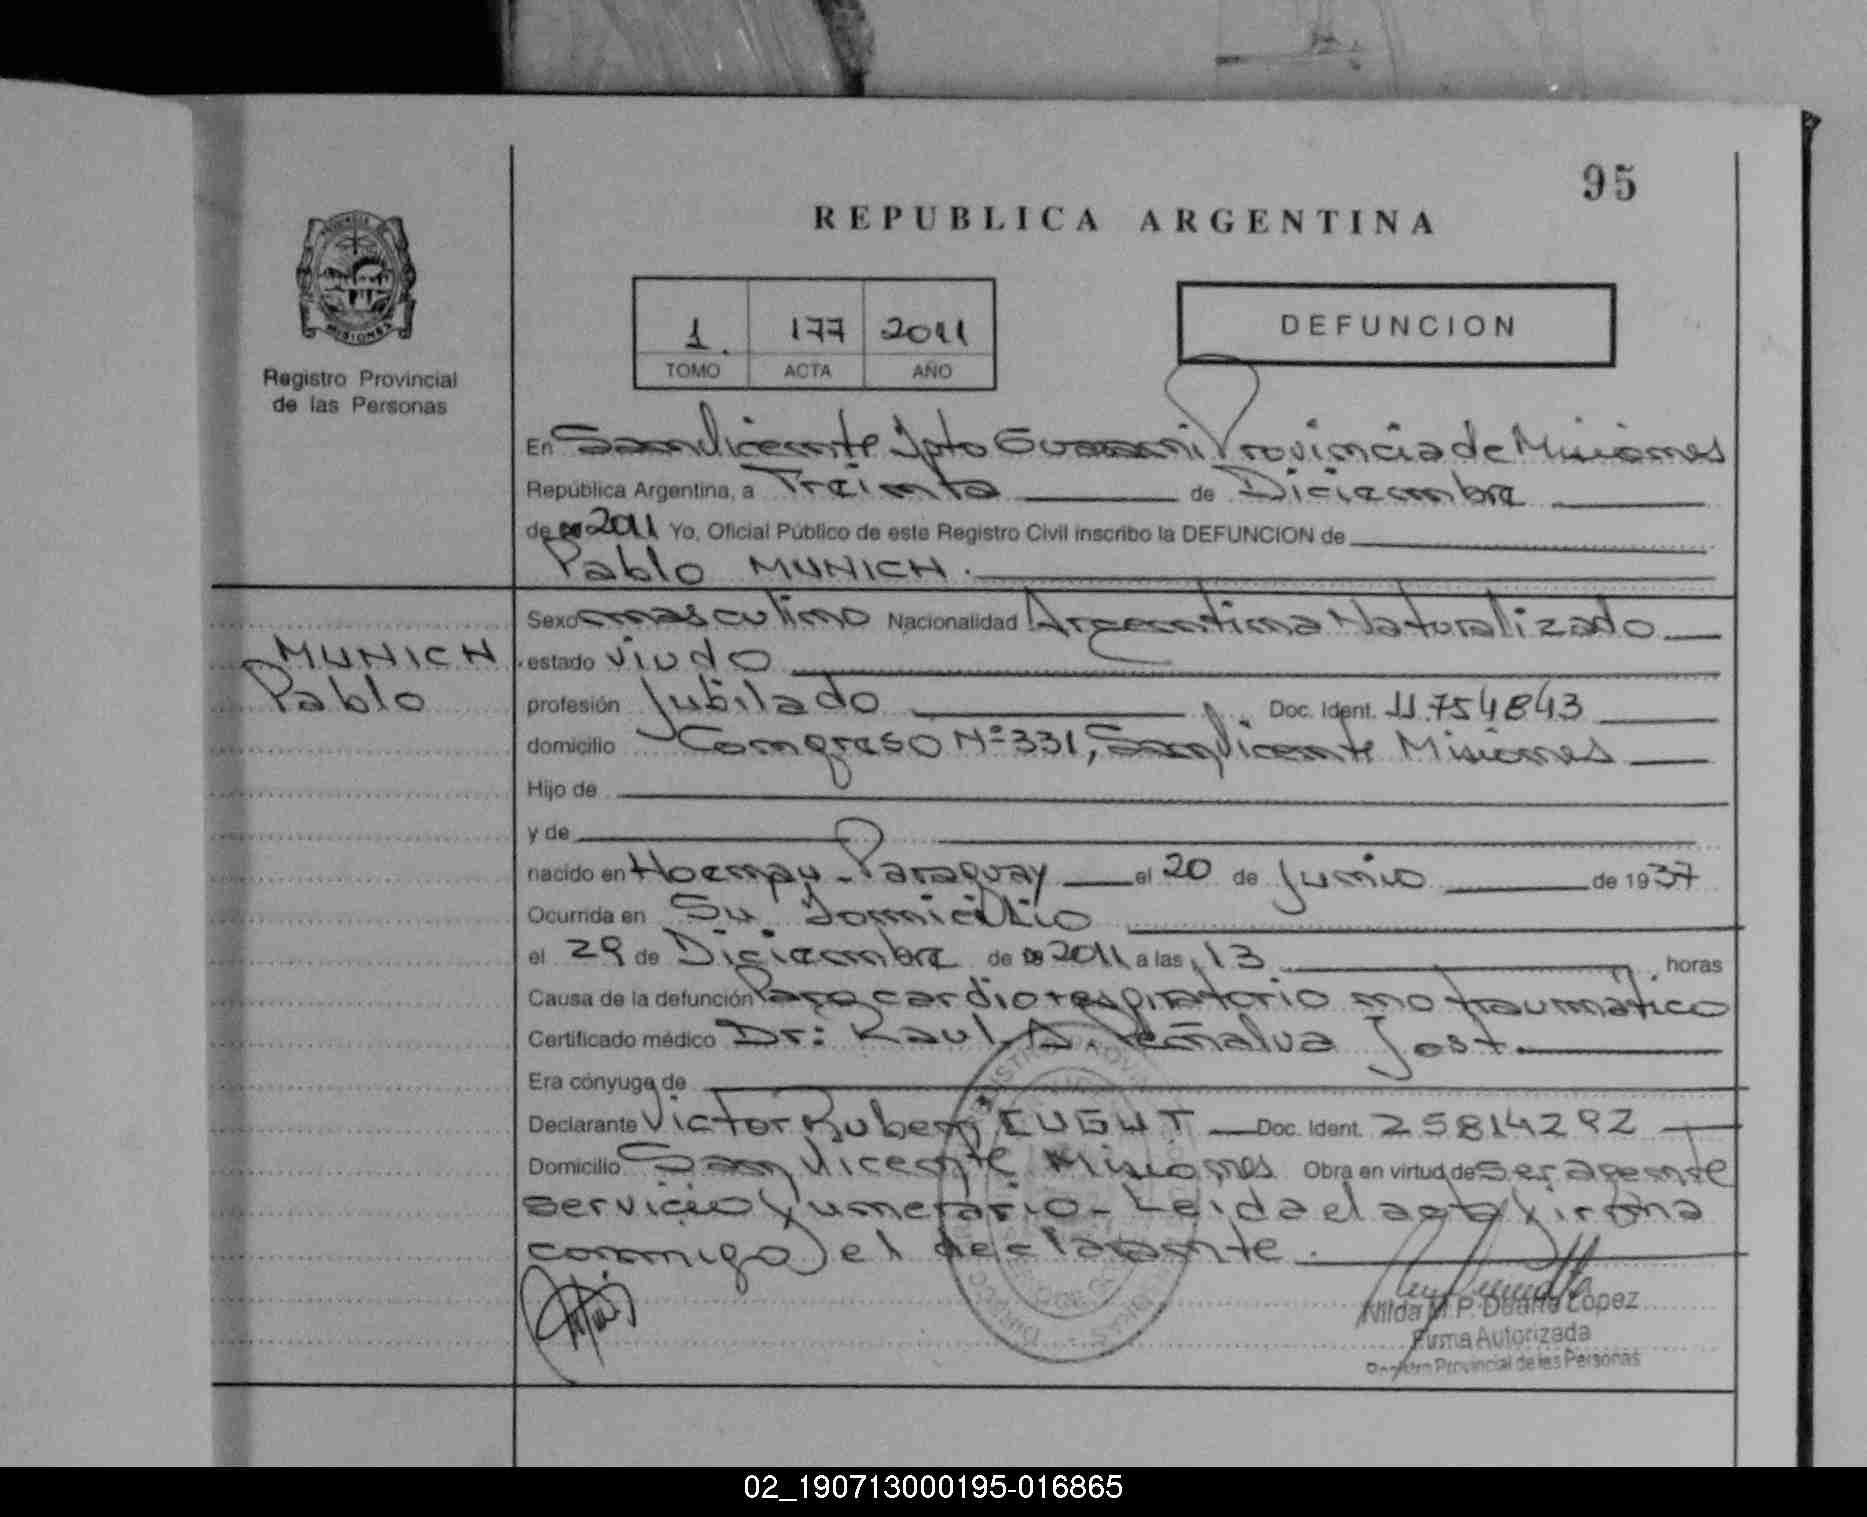 95
REPUBLICA ARGENTINA
PROVINCIA DE
MISIONES
Registro Provincial
de las Personas
1. 177 2011
TOMO ACTA AÑO
DEFUNCION
En San Vicente Dpto Guarani Provincia de Misiones
República Argentina, a Treinta de Diciembre
de 2011 Yo, Oficial Público de este Registro Civil inscribo la DEFUNCION de
Pablo MUNICH.
MUNICH
Pablo
Sexo masculino Nacionalidad Argentina Naturalizado
estado viudo
profesión Jubilado Doc. Ident. 11.754843
domicilio Congreso Nº 331, San Vicente Misiones
Hijo de
y de
nacido en Hoenay - Paraguay el 20 de Junio de 1937
Ocurrida en Su Domicilio
el 29 de Diciembre de 2011 a las 13 horas
Causa de la defunción Paro cardiorespiratorio no traumático
Certificado médico Dr: Raul A Peñalva Jost.
Era cónyuge de
Declarante Victor Ruben Doc. Ident. 25814292
Domicilio San Vicente Misiones Obra en virtud de ser agente
servicio Funerario - Leida el acta Firma
conmigo el declarante.
Nilda M.P. Duarte López
Firma Autorizada
Registro Provincial de las Personas
02_190713000195-016865